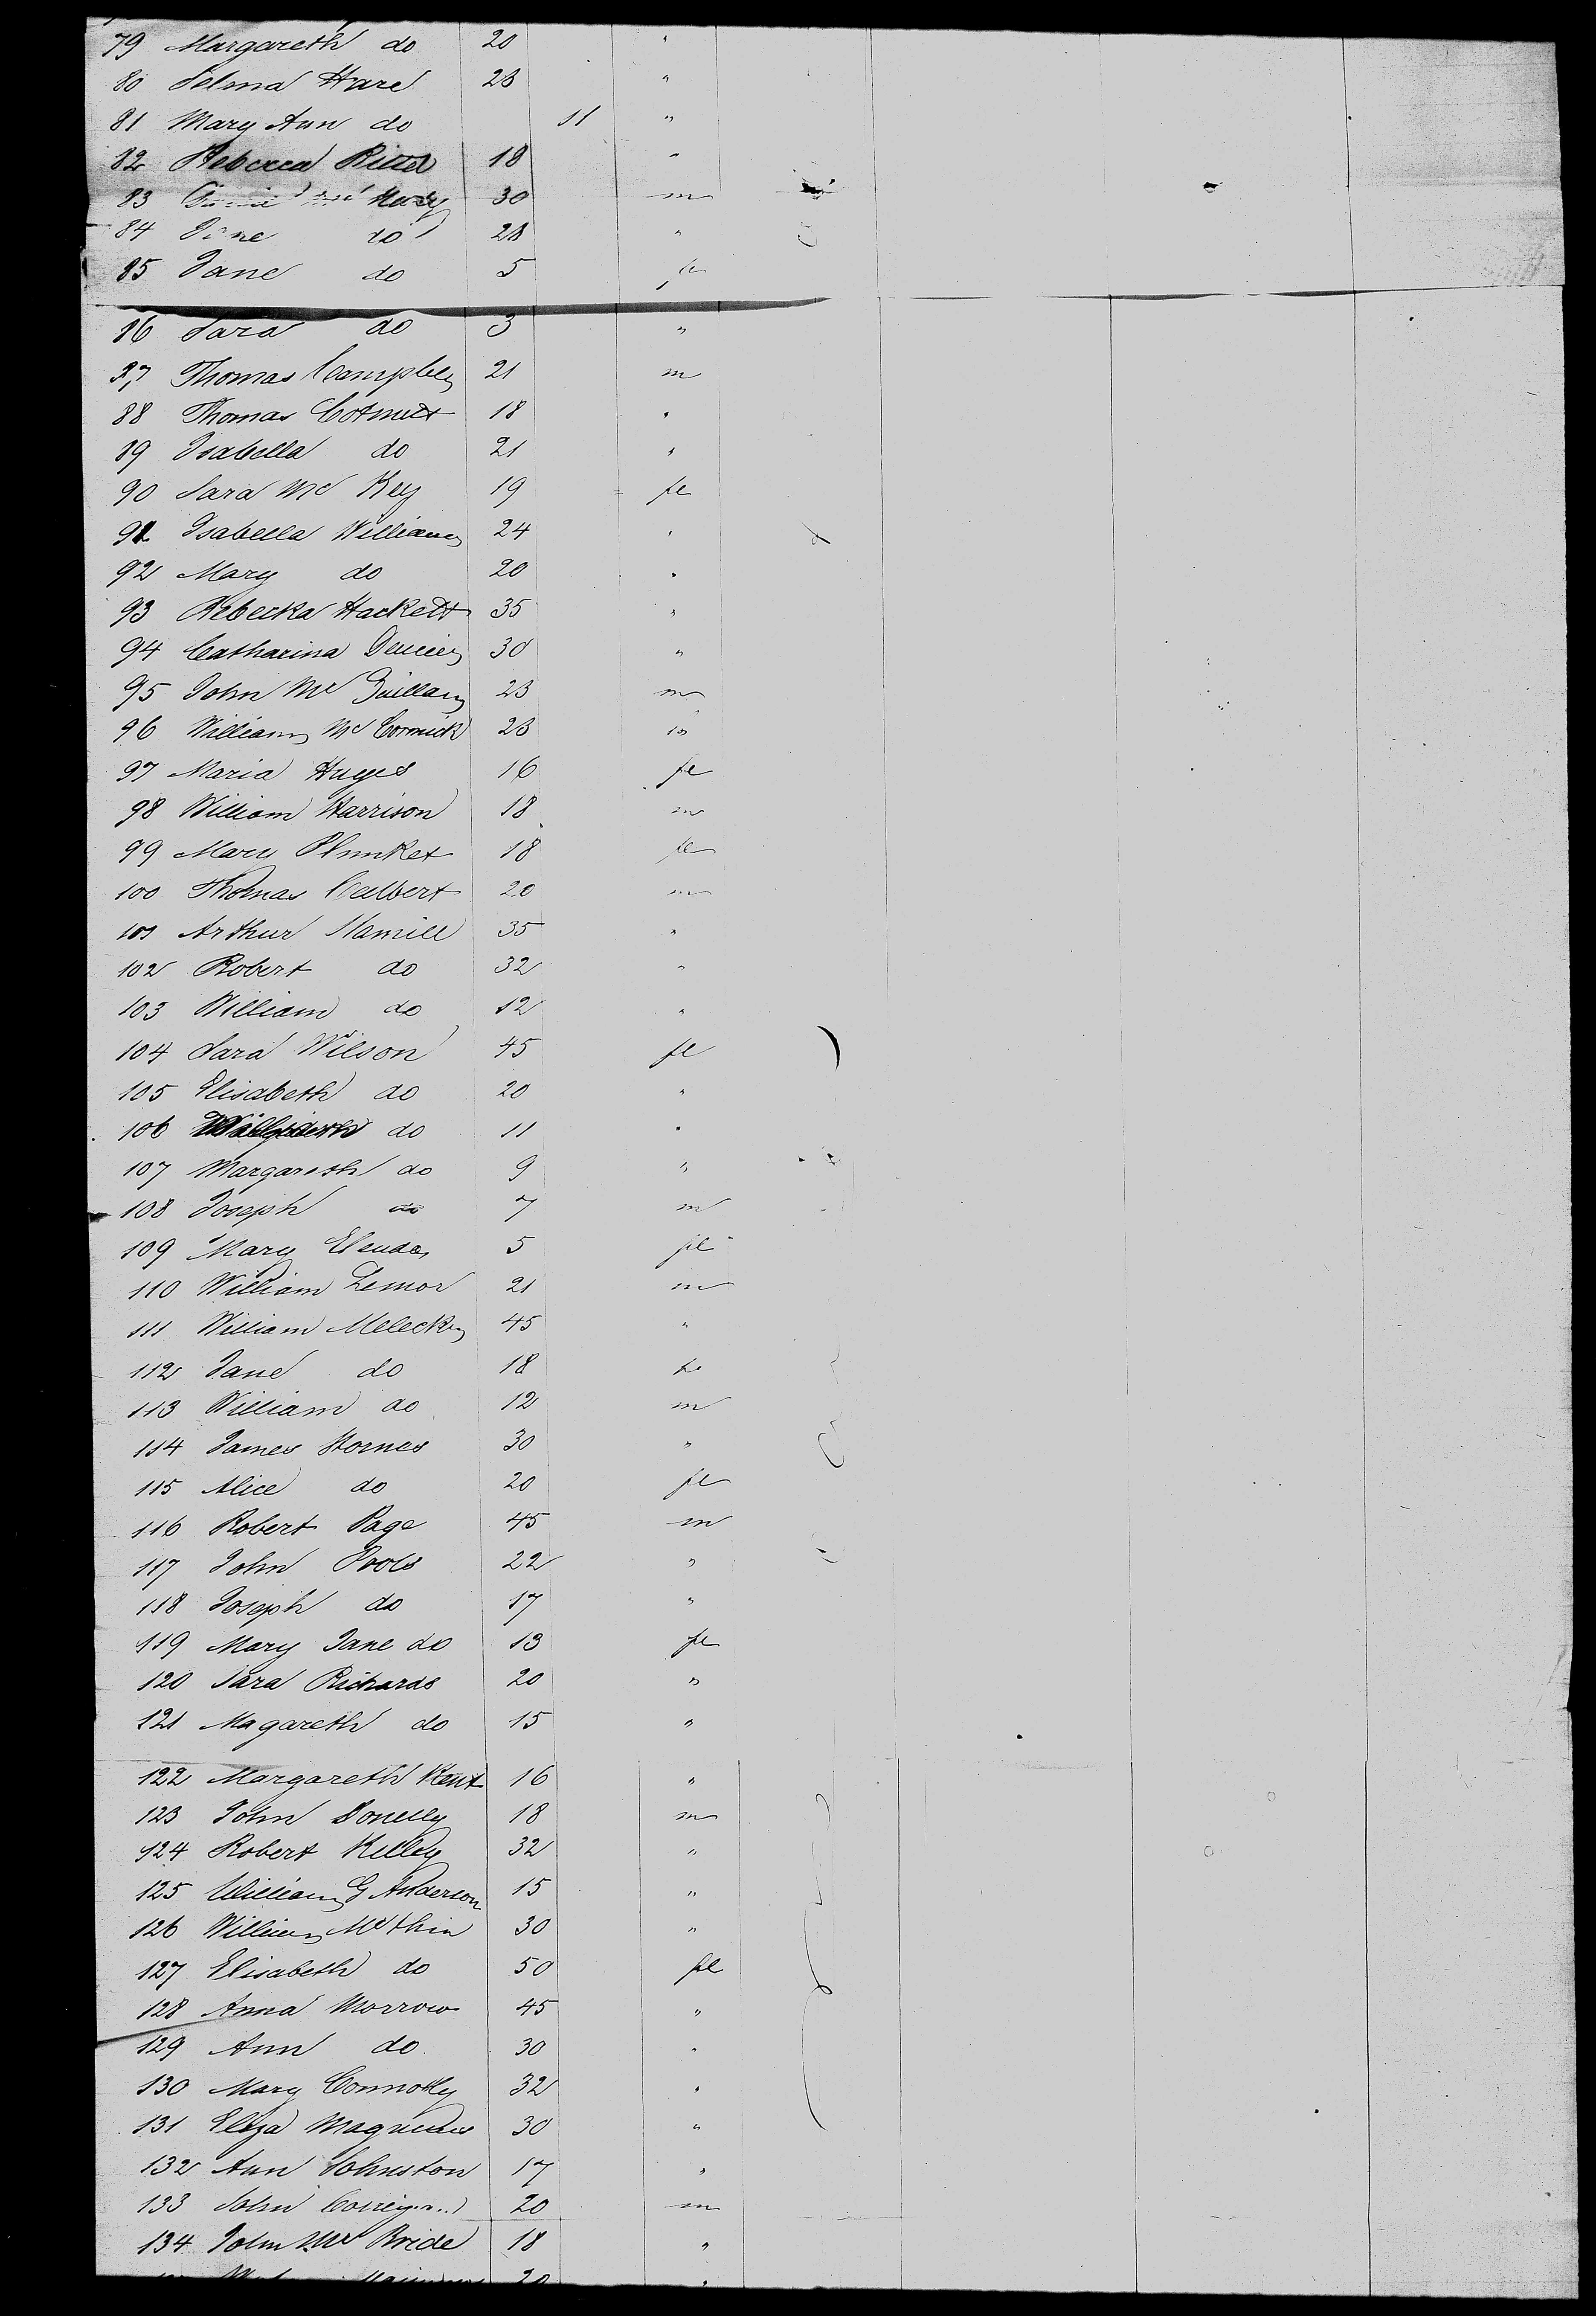 79 Margareth do 20 "
80 Selma Hare 23 "
81 Mary Ann do 11 "
82 Rebecca 18 "
83 30 m
84 do 28 "
85 Jane do 5 fe
86 Sara do 3 "
87 Thomas Campbell 21 m
88 Thomas 18 "
89 Isabella do 21 "
90 Sara Mc Key 19 fe
91 Isabella Williams 24 "
92 Mary do 20 "
93 Rebecka Hackett 35 "
94 Catharina 30 "
95 John Mc 23 m
96 William Mc Cormick 23 m
97 Maria Huges 16 fe
98 William Harrison 18 m
99 Mary Plunket 18 fe
100 Thomas Calbert 20 m
101 Arthur Hamill 35 "
102 Robert do 32 "
103 William do 12 "
104 Sara Wilson 45 fe
105 Elisabeth do 20 "
106 do 11 "
107 Margareth do 9 "
108 Joseph do 7 m
109 Mary 5 fe
110 William Lemor 21 m
111 William 45 "
112 Jane do 18 fe
113 William do 12 m
114 James Hornes 30 "
115 Alice do 20 fe
116 Robert Page 45 m
117 John Pools 22 "
118 Joseph do 17 "
119 Mary Jane do 13 fe
120 Sara Richards 20 "
121 Magareth do 15 "
122 Margareth Kent 16 "
123 John Donelly 18 m
124 Robert Kelley 32 "
125 William G Anderson 15 "
126 William 30 "
127 Elisabeth do 50 fe
128 Anna Morrow 45 "
129 Ann do 30 "
130 Mary Connolly 32 "
131 Eliza 30 "
132 Ann Johnston 17 "
133 John 20 m
134 John Mc Bride 18 "
20 "